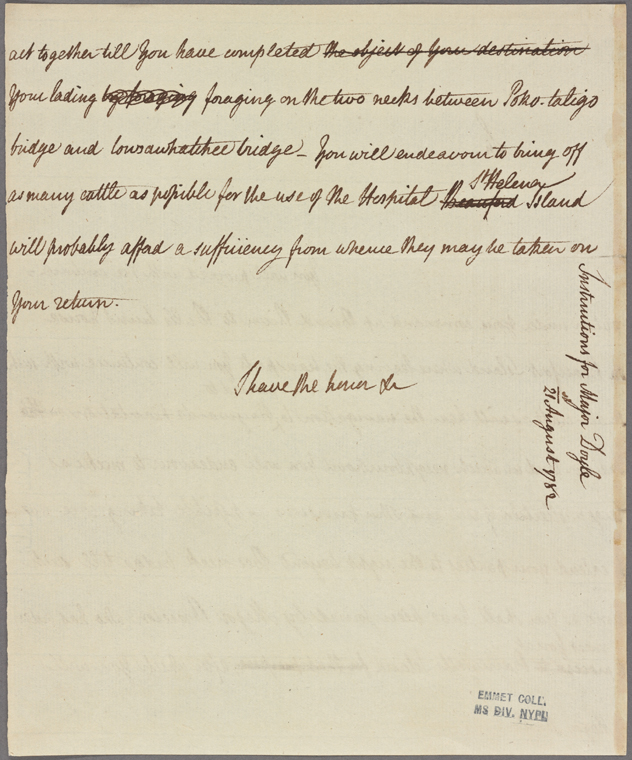 act together till You have completed the object of Your destination
Your lading by foraging foraging on the two necks between Poko-taligo
bridge and Cousawhatchee bridge – You will endeavour to bring off
as many cattle as possible for the use of the Hospital Beauford St Helena Island
will probably afford a sufficiency from whence they may be taken on
Your return.
I have the honor &c
Instructions for Major Doyle
21 August 1782
EMMET COLL.
MS DIV. NYPL